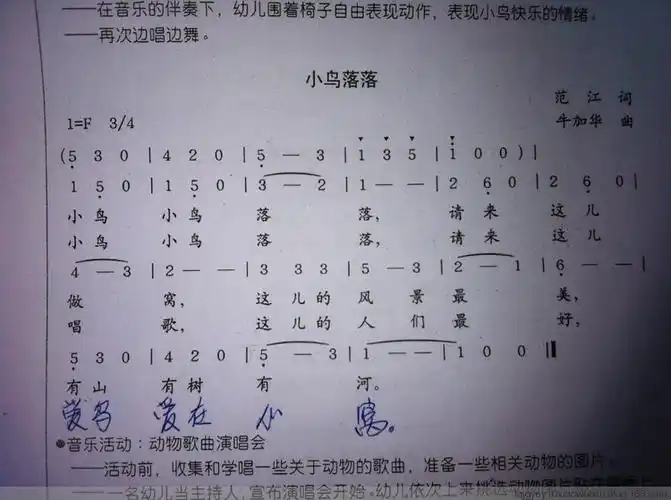 ——在音乐的伴奏下，幼儿围着椅子自由表现动作，表现小鸟快乐的情绪。
——再次边唱边舞。
小鸟落落
范 江 词
1=F 3/4
牛加华 曲
(5̣ 3 0 | 4 2 0 | 5̣ — 3 | 1 3 5 | i 0 0) |
1 5̣ 0 | 1 5̣ 0 | 3 — 2 | 1 — — | 2 6̣ 0 | 2 6̣ 0 |
小鸟 小鸟 落 落， 请来 这儿
小鸟 小鸟 落 落， 请来 这儿
4 — 3 | 2 — — | 3 3 3 | 5 — 3 | 2 — 1 | 6̣ — — |
做 窝， 这儿的 风 景 最 美，
唱 歌， 这儿的 人 们 最 好，
5̣ 3 0 | 4 2 0 | 5̣ — 3 | 1 — — | 1 0 0 ‖
有山 有树 有 河。
爱在 小 窝。
●音乐活动：动物歌曲演唱会
——活动前，收集和学唱一些关于动物的歌曲，准备一些相关动物的图片。
——一名幼儿当主持人，宣布演唱会开始。幼儿依次上来挑选动物图片